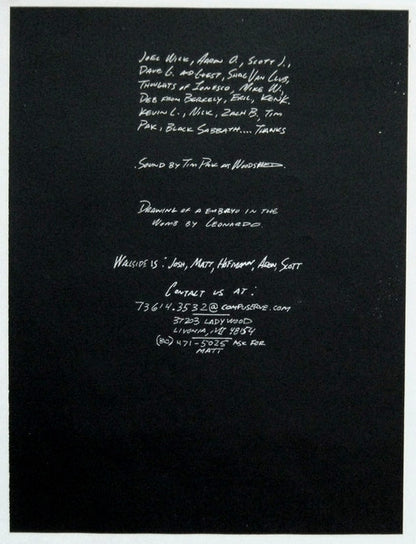 Joel Wick, Aaron D., Scott J.,
Dave G. and Guest, Shag Van Club,
Thoughts of Ionesco, Mike W,
Deb from Berkely, Eric, Kenk.
Kevin L., Nick, Zach B. Tim
Pak, Black Sabbath.... Thanks
Sound by Tim Pak at Woodshed.
Drawing of a embryo in the
womb by Leonardo
Wallside is: Josh, Matt, Hoffmann, Aaron, Scott
Contact us at:
73614.3532@compuserve.com
37203 Ladywood
Livonia, MI 48154
471-5025 ask for
Matt